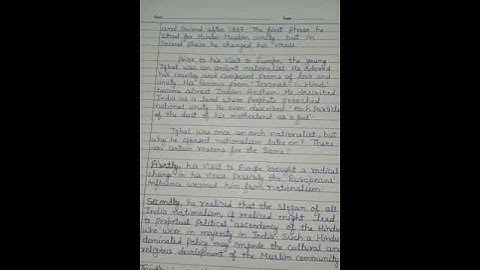 and Second after 1857. The first phase he
stood for Hindu Muslim unity, but in
Second phase he changed his views.
Prior to his visit to Europe, the young
Iqbal was an ardent nationalist. He adored
his country and composed poems of love and
unity. His famous poem 'Taranah i Hindi'
became almost Indian Anthem. He described
India as a land where Prophets preached
national unity. He even described "each particle
of the dust of his motherland as a god"
Iqbal was once an arch nationalist, but
why he opposed nationalism later on? There
are certain reasons for the Same.
Firstly, his visit to Europe brought a radical
change in his views. Possibly the Europeans'
influence weaned him from nationalism.
Secondly, he realized that the slogan of all
India nationalism, if realized might lead
to perpetual political ascendency of the Hindu
who were in majority in India. Such a Hindu
dominated policy may impede the cultural and
religious development of the Muslim community